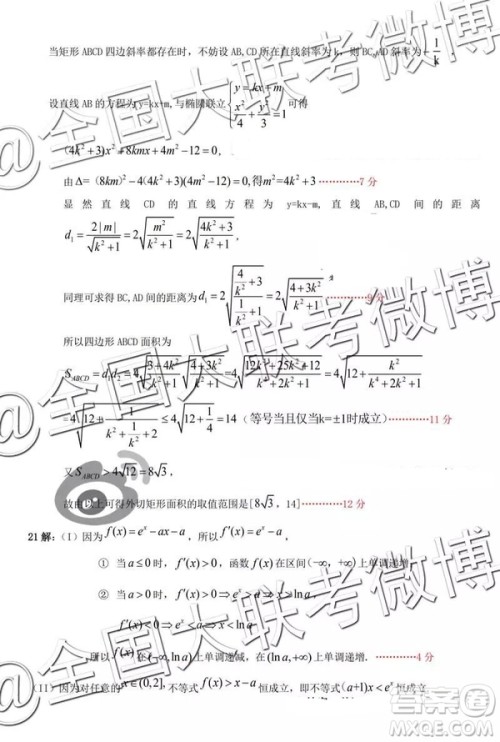 当矩形 ABCD 四边斜率都存在时，不妨设 AB,CD 所在直线斜率为 k，则 BC,AD 斜率为 -1/k
设直线 AB 的方程为 y=kx+m，与椭圆联立 { y=kx+m, x²/4+y²/3=1 可得
(4k²+3)x²+8kmx+4m²-12=0，
由 Δ=(8km)²-4(4k²+3)(4m²-12)=0,得m²=4k²+3 …………7 分
显然直线 CD 的直线方程为 y=kx-m，直线 AB,CD 间的距离
d₁=2|m|/√(k²+1)=2√(m²/(k²+1))=2√((4k²+3)/(k²+1))，
同理可求得 BC,AD 间的距离为 d₁=2√((4/k²+3)/(1/k²+1))=2√((4+3k²)/(k²+1)) …………9 分
所以四边形 ABCD 面积为
S_ABCD=d₁d₂=4√((3+4k²)/(k²+1))√((4+3k²)/(k²+1))=4√((12k⁴+25k²+12)/(k⁴+2k²+1))=4√(12+k²/(k⁴+2k²+1))
=4√(12+1/(k²+1/k²+2))≤4√(12+1/4)=14（等号当且仅当k=±1时成立）…………11 分
又 S_ABCD>4√12=8√3，
故由以上可得外切矩形面积的取值范围是[8√3，14] …………12 分
21 解：（I）因为 f(x)=eˣ-ax-a，所以 f′(x)=eˣ-a，
① 当 a≤0 时，f′(x)>0，函数 f(x) 在区间 (-∞,+∞) 上单调递增
② 当 a>0 时，f′(x)>0⇒eˣ>a⇒x>ln a，
f′(x)<0⇒eˣ<a⇒x<ln a
所以 f(x) 在 (-∞,ln a) 上单调递减，在 (ln a,+∞) 上单调递增. …………4 分
（II）因为对任意的 x∈(0,2]，不等式 f(x)>x-a 恒成立，即不等式 (a+1)x<eˣ 恒成立
@全国大联考微博
@全国大联考微博
@全国大联考微博
答案圈